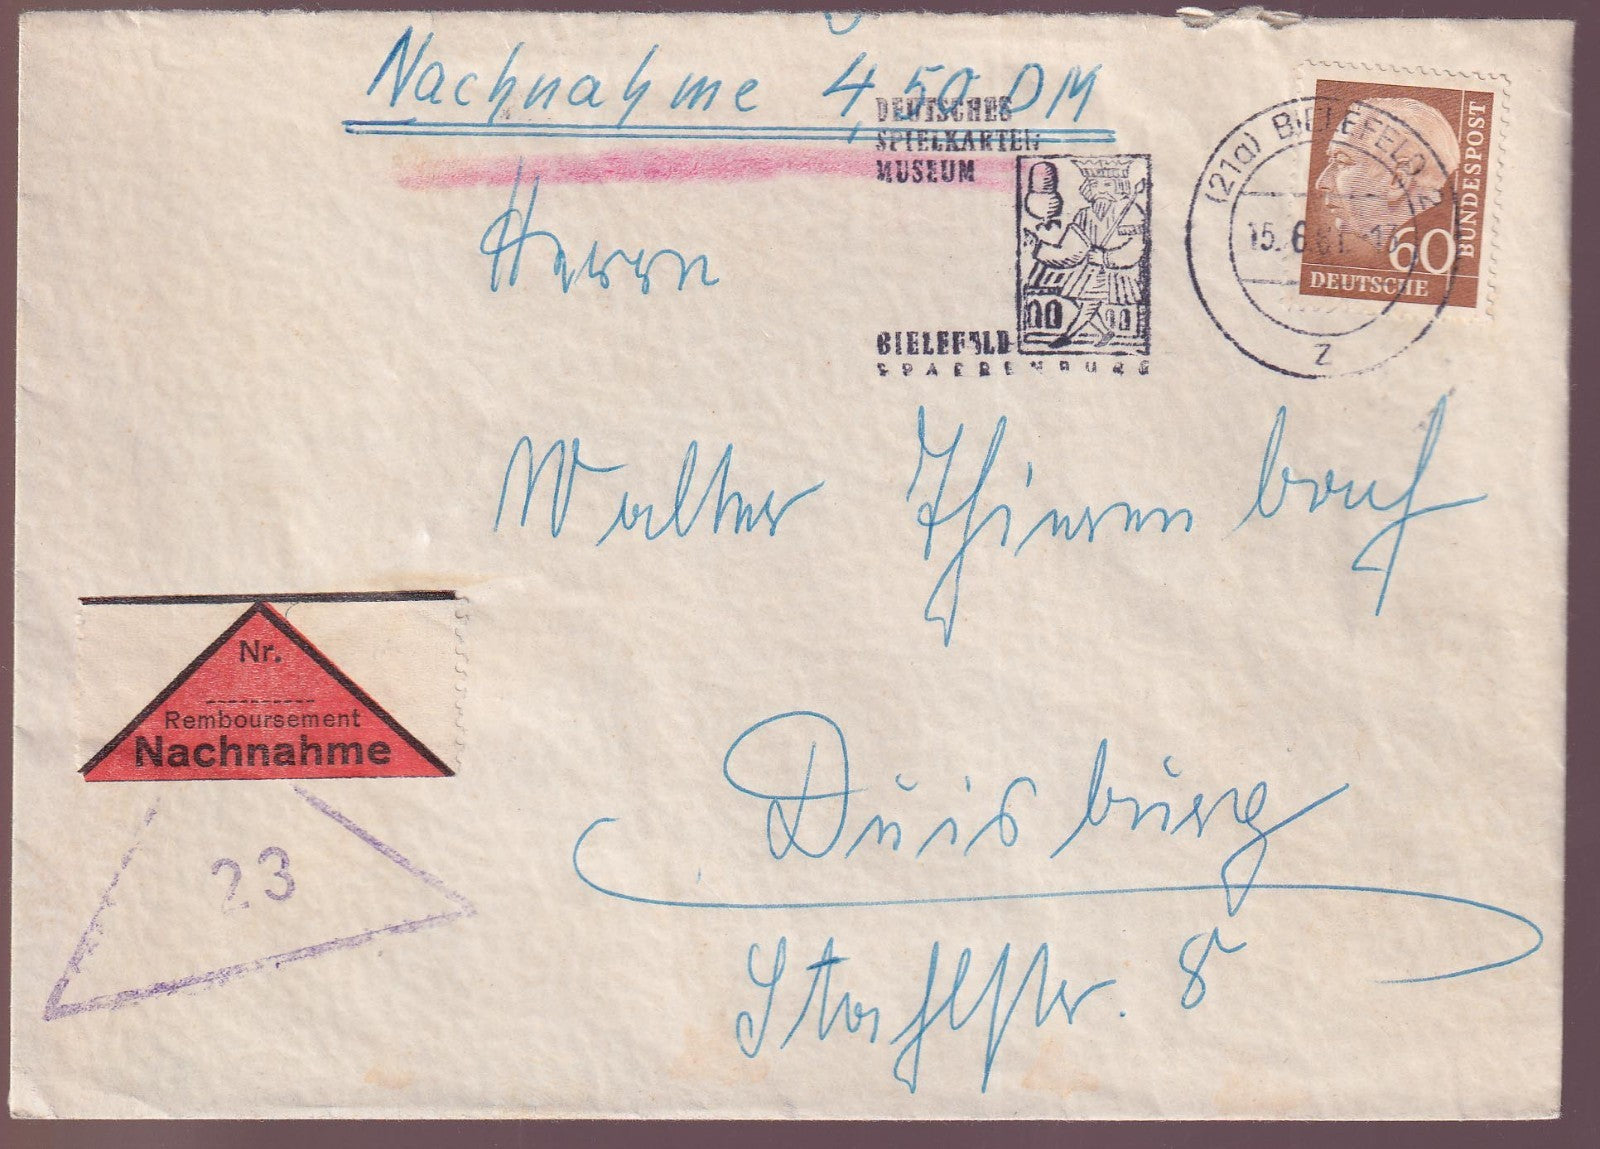 Nachnahme 4,50 DM
DEUTSCHES
SPIELKARTEN
MUSEUM
BIELEFELD
SPARRENBURG
(21a) BIELEFELD 2
15.6.61.-13
z
60
DEUTSCHE
BUNDESPOST
Herrn
Walter
Duisburg
Stahlstr. 8
Nr.
Remboursement
Nachnahme
23